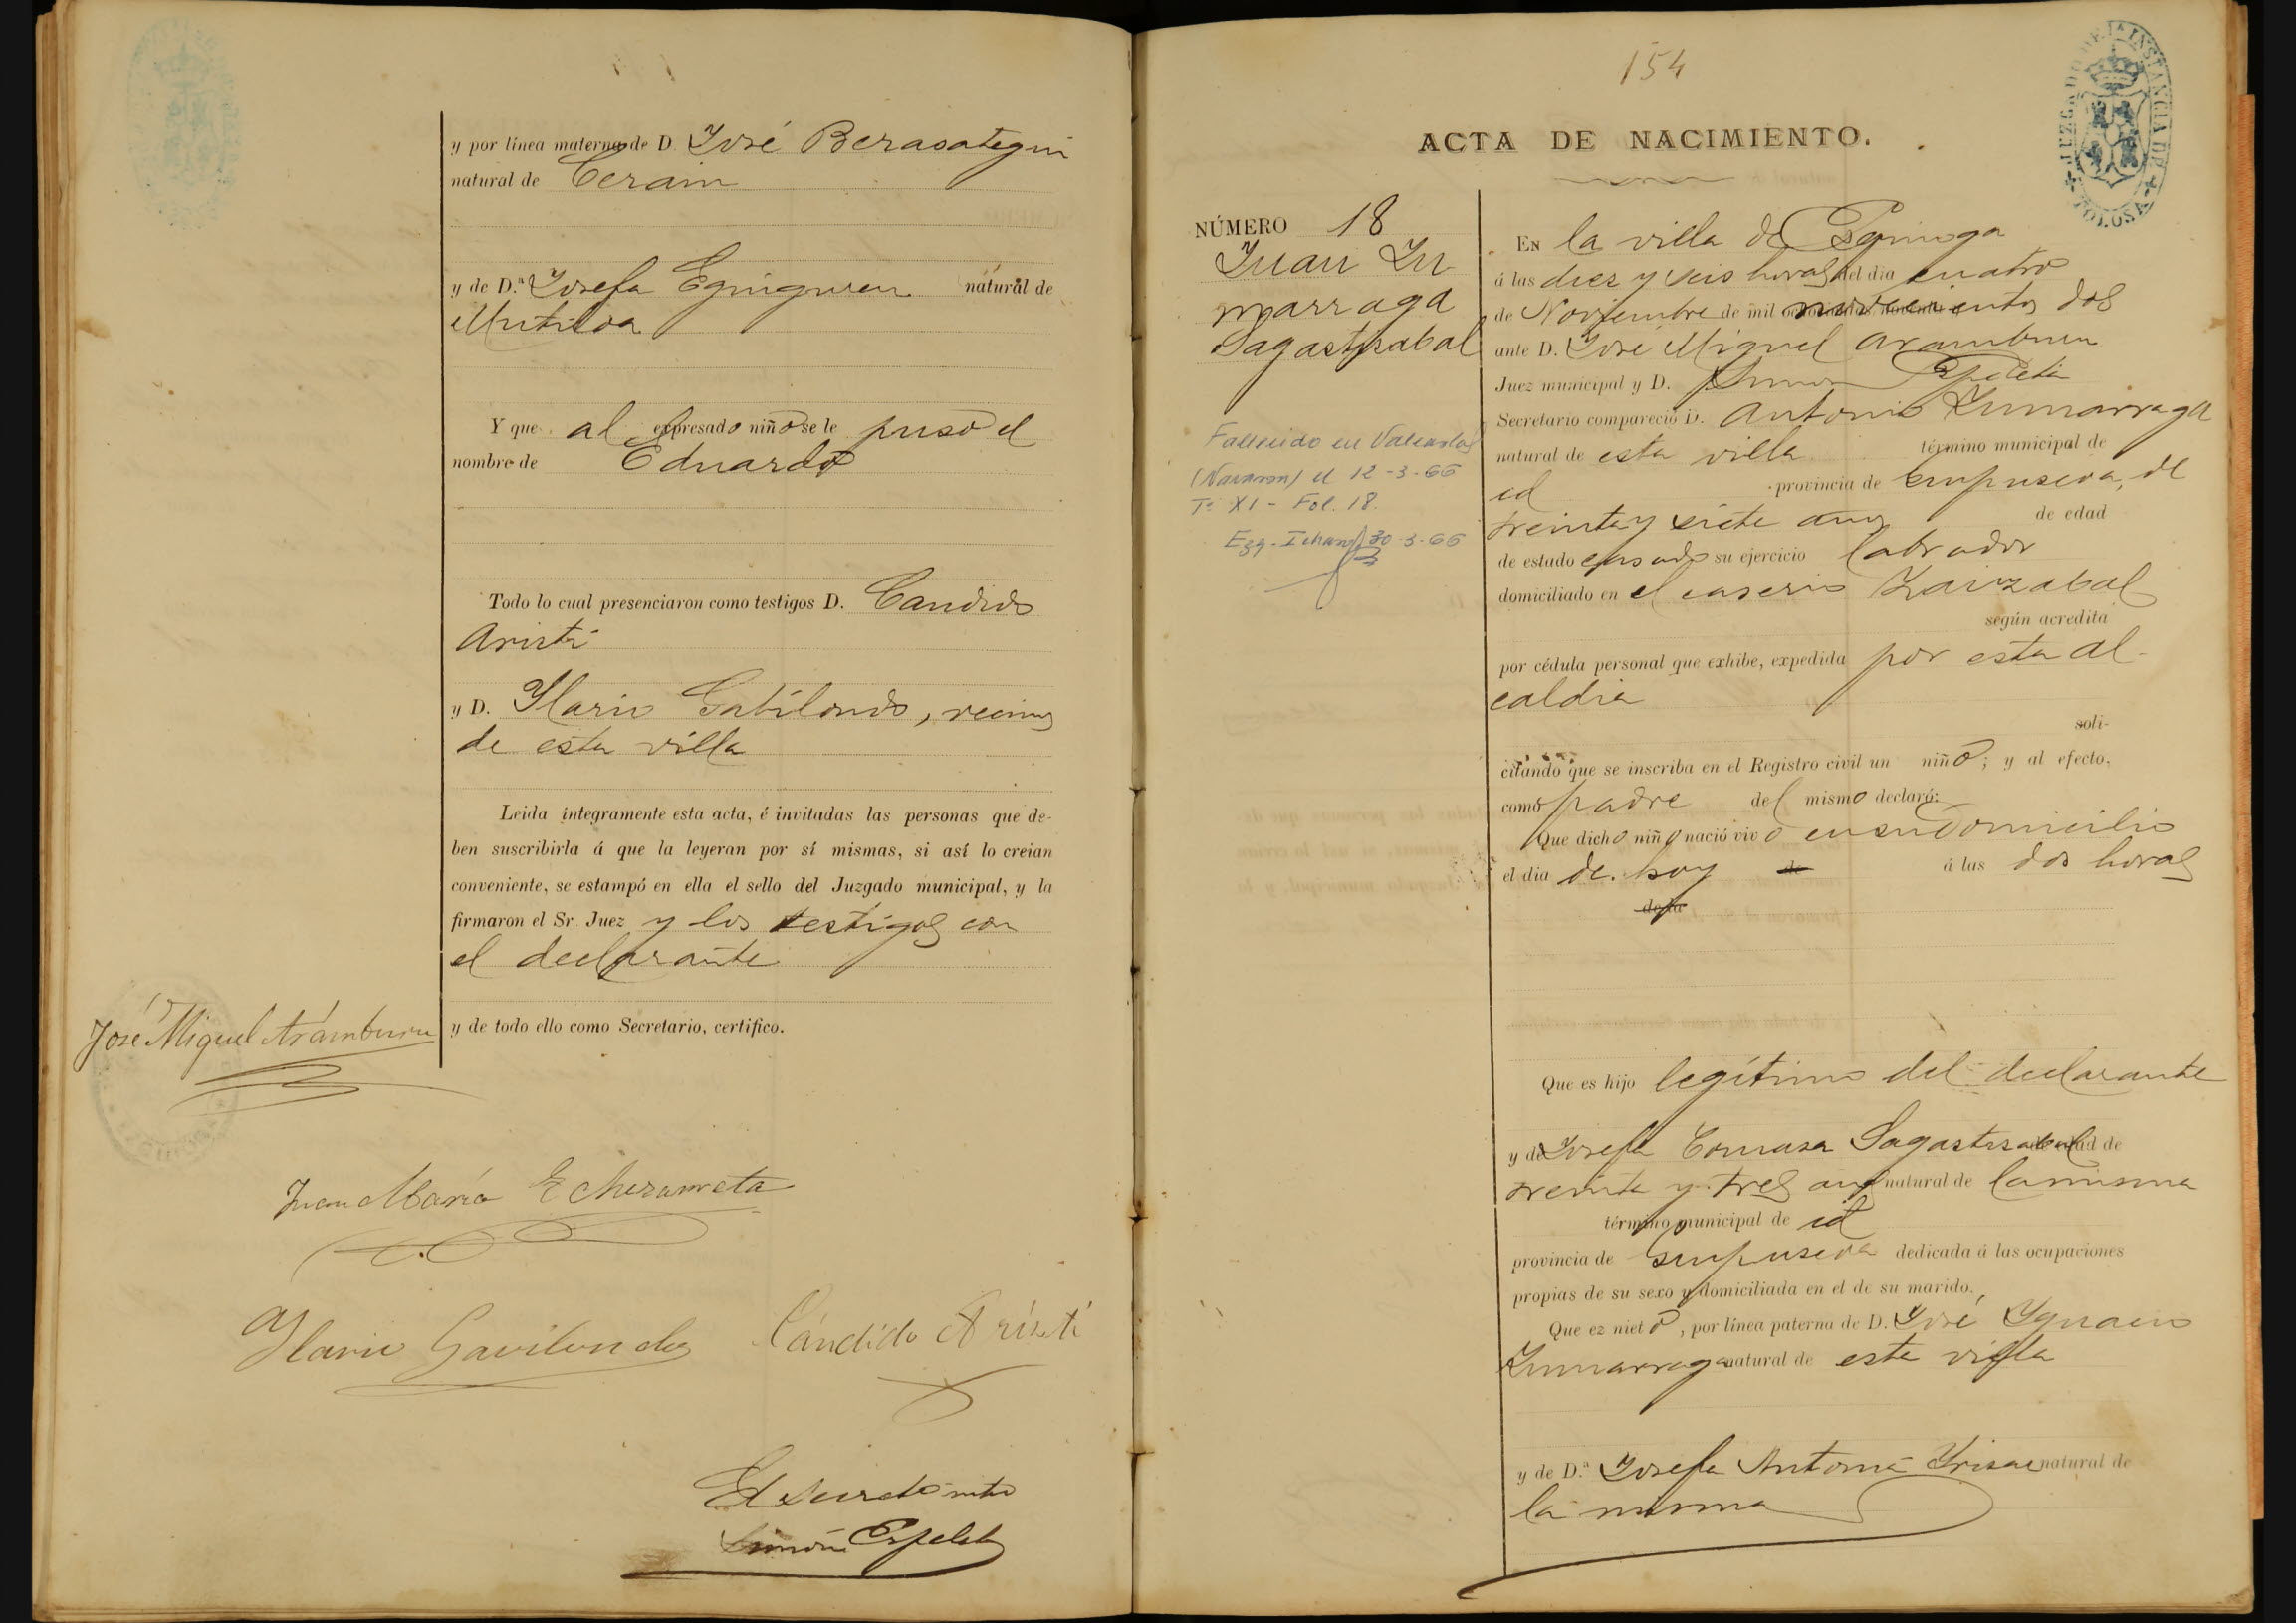 y por línea materna de D. José Berasategui
natural de Cerain
y de D.ª Josefa Eguiguren natural de
Mutiloa
Y que al expresado niño se le puso el
nombre de Eduardo
Todo lo cual presenciaron como testigos D. Candido
Aristi
y D. Ylario Gabilondo, vecinos
de esta villa
Leida íntegramente esta acta, é invitadas las personas que de-
ben suscribirla á que la leyeran por sí mismas, si así lo creian
conveniente, se estampó en ella el sello del Juzgado municipal, y la
firmaron el Sr. Juez y los testigos con
el declarante
y de todo ello como Secretario, certifico.
José Miguel Aramburu
Juan María Echezarreta
Ylario Gavilondo Cándido Aristi
El Secretario
Simón Espeleta
154
ACTA DE NACIMIENTO.
JUZGADO DE 1ª INSTANCIA DE TOLOSA
NÚMERO 18
Juan Zu
marraga
Sagastizabal
Fallecido en Valcarlos
(Navarra) el 12-3-66
Tº XI - Fol. 18.
30-3-66
En la villa de
á las diez y seis horas del dia cuatro
de Noviembre de mil novecientos dos
ante D. José Miguel Aramburu
Juez municipal y D. Simon Espeleta
Secretario compareció D. Antonio Zumarraga
natural de esta villa término municipal de
id provincia de Guipuscoa, de
treinta y siete años de edad
de estado casado su ejercicio labrador
domiciliado en el caserio
según acredita
por cédula personal que exhibe, expedida por esta Al-
caldia
soli-
citando que se inscriba en el Registro civil un niño; y al efecto,
como padre del mismo declaró:
Que dicho niño nació vivo en su domicilio
el dia de hoy de á las dos horas
de la
Que es hijo legítimo del declarante
y de Josefa Tomasa Sagastisabal de edad de
treinta y tres años natural de la misma
término municipal de id
provincia de Guipuscoa dedicada á las ocupaciones
propias de su sexo y domiciliada en el de su marido.
Que ez nieto, por línea paterna de D. José Ygnacio
Zumarraga natural de esta villa
y de D.ª Josefa Antonia Yrisar natural de
la misma